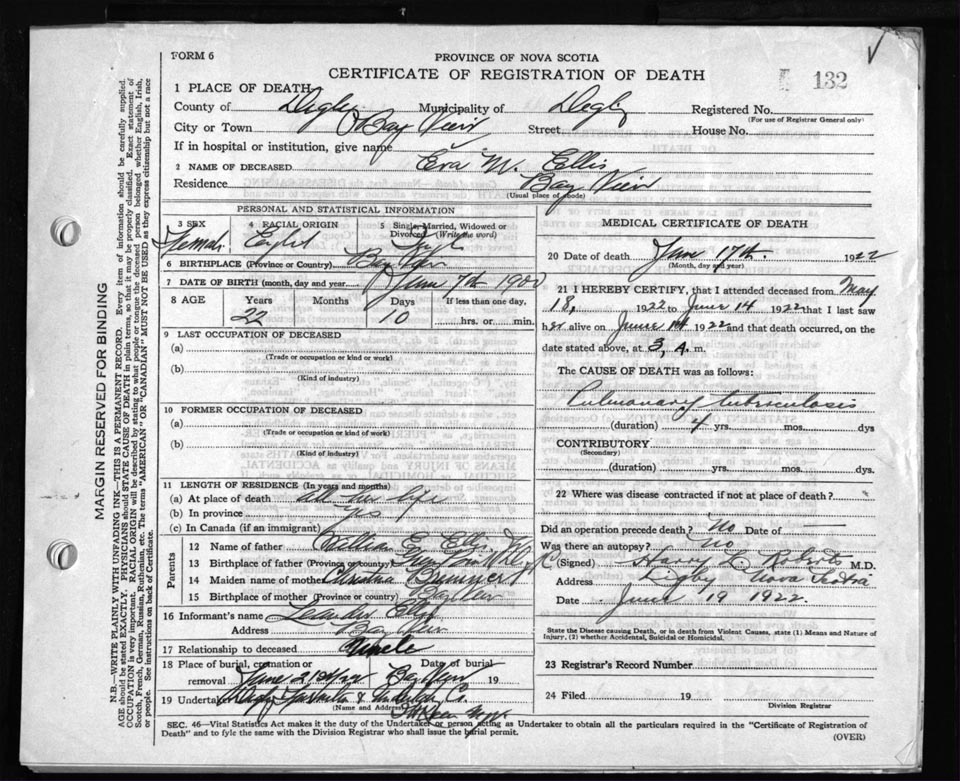 FORM 6
PROVINCE OF NOVA SCOTIA
CERTIFICATE OF REGISTRATION OF DEATH
132
1 PLACE OF DEATH
County of Digby Municipality of Digby Registered No.
(For use of Registrar General only)
City or Town Bay View Street House No.
If in hospital or institution, give name
2 NAME OF DECEASED Eva M. Ellis
Residence Bay View
(Usual place of abode)
PERSONAL AND STATISTICAL INFORMATION
3 SEX 4 RACIAL ORIGIN 5 Single, Married, Widowed or Divorced (Write the word)
Female
6 BIRTHPLACE (Province or Country) Bay View
7 DATE OF BIRTH (month, day and year) 7th 1900
8 AGE Years Months Days If less than one day,
22 10 hrs. or min.
9 LAST OCCUPATION OF DECEASED
(a)
(Trade or occupation or kind or work)
(b)
(Kind of industry)
10 FORMER OCCUPATION OF DECEASED
(a)
(Trade or occupation or kind of work)
(b)
(Kind of industry)
11 LENGTH OF RESIDENCE (In years and months)
(a) At place of death all her life
(b) In province yes
(c) In Canada (if an immigrant)
Parents
12 Name of father William E. Ellis
13 Birthplace of father (Province or country)
14 Maiden name of mother
15 Birthplace of mother (Province or country) Bay View
16 Informant's name Leander Ellis
Address Bay View
17 Relationship to deceased Uncle
18 Place of burial, cremation or removal Date of burial 19
19 Undertaker & Co.
(Name and Address)
MEDICAL CERTIFICATE OF DEATH
20 Date of death June 17th. 1922
(Month, day and year)
21 I HEREBY CERTIFY, that I attended deceased from May
18, 1922 to June 14 1922 that I last saw
her alive on June 14 1922 and that death occurred, on
date stated above, at 3, A. m.
The CAUSE OF DEATH was as follows:
Pulmonary tuberculosis
(duration) 4 yrs. mos. dys
CONTRIBUTORY
(Secondary)
(duration) yrs. mos. dys.
22 Where was disease contracted if not at place of death?
Did an operation precede death? No Date of —
Was there an autopsy? no
(Signed) Harry L. Roberts M.D.
Address Digby Nova Scotia
Date June 19 1922.
State the Disease causing Death, or in death from Violent Causes, state (1) Means and Nature of
Injury, (2) whether Accidental, Suicidal or Homicidal.
23 Registrar's Record Number
24 Filed 19
Division Registrar
SEC. 46—Vital Statistics Act makes it the duty of the Undertaker or person acting as Undertaker to obtain all the particulars required in the "Certificate of Registration of
Death" and to fyle the same with the Division Registrar who shall issue the burial permit.
(OVER)
MARGIN RESERVED FOR BINDING
N.B.—WRITE PLAINLY WITH UNFADING INK—THIS IS A PERMANENT RECORD. Every item of information should be carefully supplied.
AGE should be stated EXACTLY. PHYSICIANS should STATE CAUSE OF DEATH in plain terms, so that it may be properly classified. Exact statement of
OCCUPATION is very important. RACIAL ORIGIN will be described by stating to what people or tongue the deceased person belonged whether English, Irish,
Scotch, French, German, Russian, Ruthenian, etc. The terms "AMERICAN" OR "CANADIAN" MUST NOT BE USED as they express citizenship but not a race
or people. See instructions on back of Certificate.